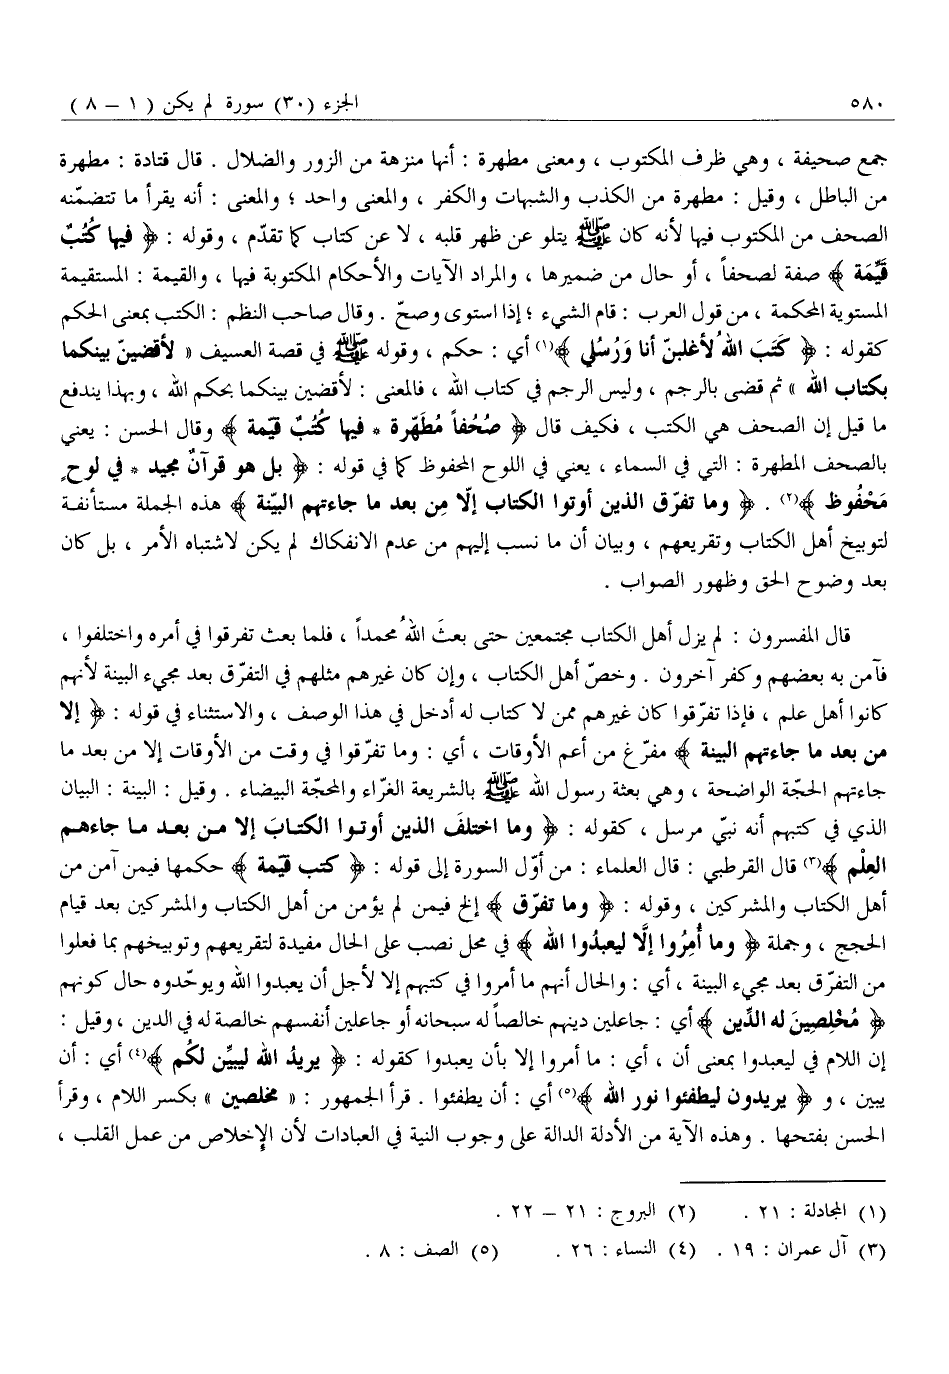 ٥٨٠ الجزء (٣٠) سورة لم يكن ( ١ – ٨ )
جمع صحيفة ، وهي ظرف المكتوب ، ومعنى مطهرة : أنها منزهة من الزور والضلال . قال قتادة : مطهرة
من الباطل ، وقيل : مطهرة من الكذب والشبهات والكفر ، والمعنى واحد ؛ والمعنى : أنه يقرأ ما تتضمّنه
الصحف من المكتوب فيها لأنه كان ﷺ يتلو عن ظهر قلبه ، لا عن كتاب كما تقدّم ، وقوله : ﴿ فيها كُتُبٌ
قَيِّمَة ﴾ صفة لصحفاً ، أو حال من ضميرها ، والمراد الآيات والأحكام المكتوبة فيها ، والقيمة : المستقيمة
المستوية المحكمة ، من قول العرب : قام الشيء ؛ إذا استوى وصحّ . وقال صاحب النظم : الكتب بمعنى الحكم
كقوله : ﴿ كَتَبَ اللهُ لأغلبنّ أنا وَرُسُلي ﴾(١) أي : حكم ، وقوله ﷺ في قصة العسيف « لأقضينّ بينكما
بكتاب الله » ثم قضى بالرجم ، وليس الرجم في كتاب الله ، فالمعنى : لأقضين بينكما بحكم الله ، وبهذا يندفع
ما قيل إن الصحف هي الكتب ، فكيف قال ﴿ صُحُفاً مُطَهّرة * فيها كُتُبٌ قيّمة ﴾ وقال الحسن : يعني
بالصحف المطهرة : التي في السماء ، يعني في اللوح المحفوظ كما في قوله : ﴿ بل هو قرآنٌ مجيد * في لوحٍ
مَحْفُوظ ﴾(٢) . ﴿ وما تفرّق الذين أوتوا الكتاب إلّا مِن بعد ما جاءتهم البيّنة ﴾ هذه الجملة مستأنفة
لتوبيخ أهل الكتاب وتقريعهم ، وبيان أن ما نسب إليهم من عدم الانفكاك لم يكن لاشتباه الأمر ، بل كان
بعد وضوح الحق وظهور الصواب .
قال المفسرون : لم يزل أهل الكتاب مجتمعين حتى بعثَ اللهُ محمداً ، فلما بعث تفرقوا في أمره واختلفوا ،
فآمن به بعضهم وكفر آخرون . وخصّ أهل الكتاب ، وإن كان غيرهم مثلهم في التفرّق بعد مجيء البينة لأنهم
كانوا أهل علم ، فإذا تفرّقوا كان غيرهم ممن لا كتاب له أدخل في هذا الوصف ، والاستثناء في قوله : ﴿ إلا
من بعد ما جاءتهم البينة ﴾ مفرّغ من أعم الأوقات ، أي : وما تفرّقوا في وقت من الأوقات إلا من بعد ما
جاءتهم الحجّة الواضحة ، وهي بعثة رسول الله ﷺ بالشريعة الغرّاء والمحجّة البيضاء . وقيل : البينة : البيان
الذي في كتبهم أنه نبيّ مرسل ، كقوله : ﴿ وما اختلفَ الذين أوتوا الكتابَ إلا من بعد ما جاءهم
العِلْم ﴾(٣) قال القرطبي : قال العلماء : من أوّل السورة إلى قوله : ﴿ كتب قيّمة ﴾ حكمها فيمن آمن من
أهل الكتاب والمشركين ، وقوله : ﴿ وما تفرّق ﴾ إلخ فيمن لم يؤمن من أهل الكتاب والمشركين بعد قيام
الحجج ، وجملة ﴿ وما أُمِرُوا إلَّا ليعبدُوا الله ﴾ في محل نصب على الحال مفيدة لتقريعهم وتوبيخهم بما فعلوا
من التفرّق بعد مجيء البينة ، أي : والحال أنهم ما أمروا في كتبهم إلا لأجل أن يعبدوا الله ويوحّدوه حال كونهم
﴿ مُخْلِصِينَ له الدِّين ﴾ أي : جاعلين دينهم خالصاً له سبحانه أو جاعلين أنفسهم خالصة له في الدين ، وقيل :
إن اللام في ليعبدوا بمعنى أن ، أي : ما أمروا إلا بأن يعبدوا كقوله : ﴿ يريدُ الله ليبيِّن لكُم ﴾(٤) أي : أن
يبين ، و ﴿ يريدون ليطفئوا نور الله ﴾(٥) أي : أن يطفئوا . قرأ الجمهور : « مخلصين » بكسر اللام ، وقرأ
الحسن بفتحها . وهذه الآية من الأدلة الدالة على وجوب النية في العبادات لأن الإخلاص من عمل القلب ،
(١) المجادلة : ٢١ . (٢) البروج : ٢١ – ٢٢ .
(٣) آل عمران : ١٩ . (٤) النساء : ٢٦ . (٥) الصف : ٨ .